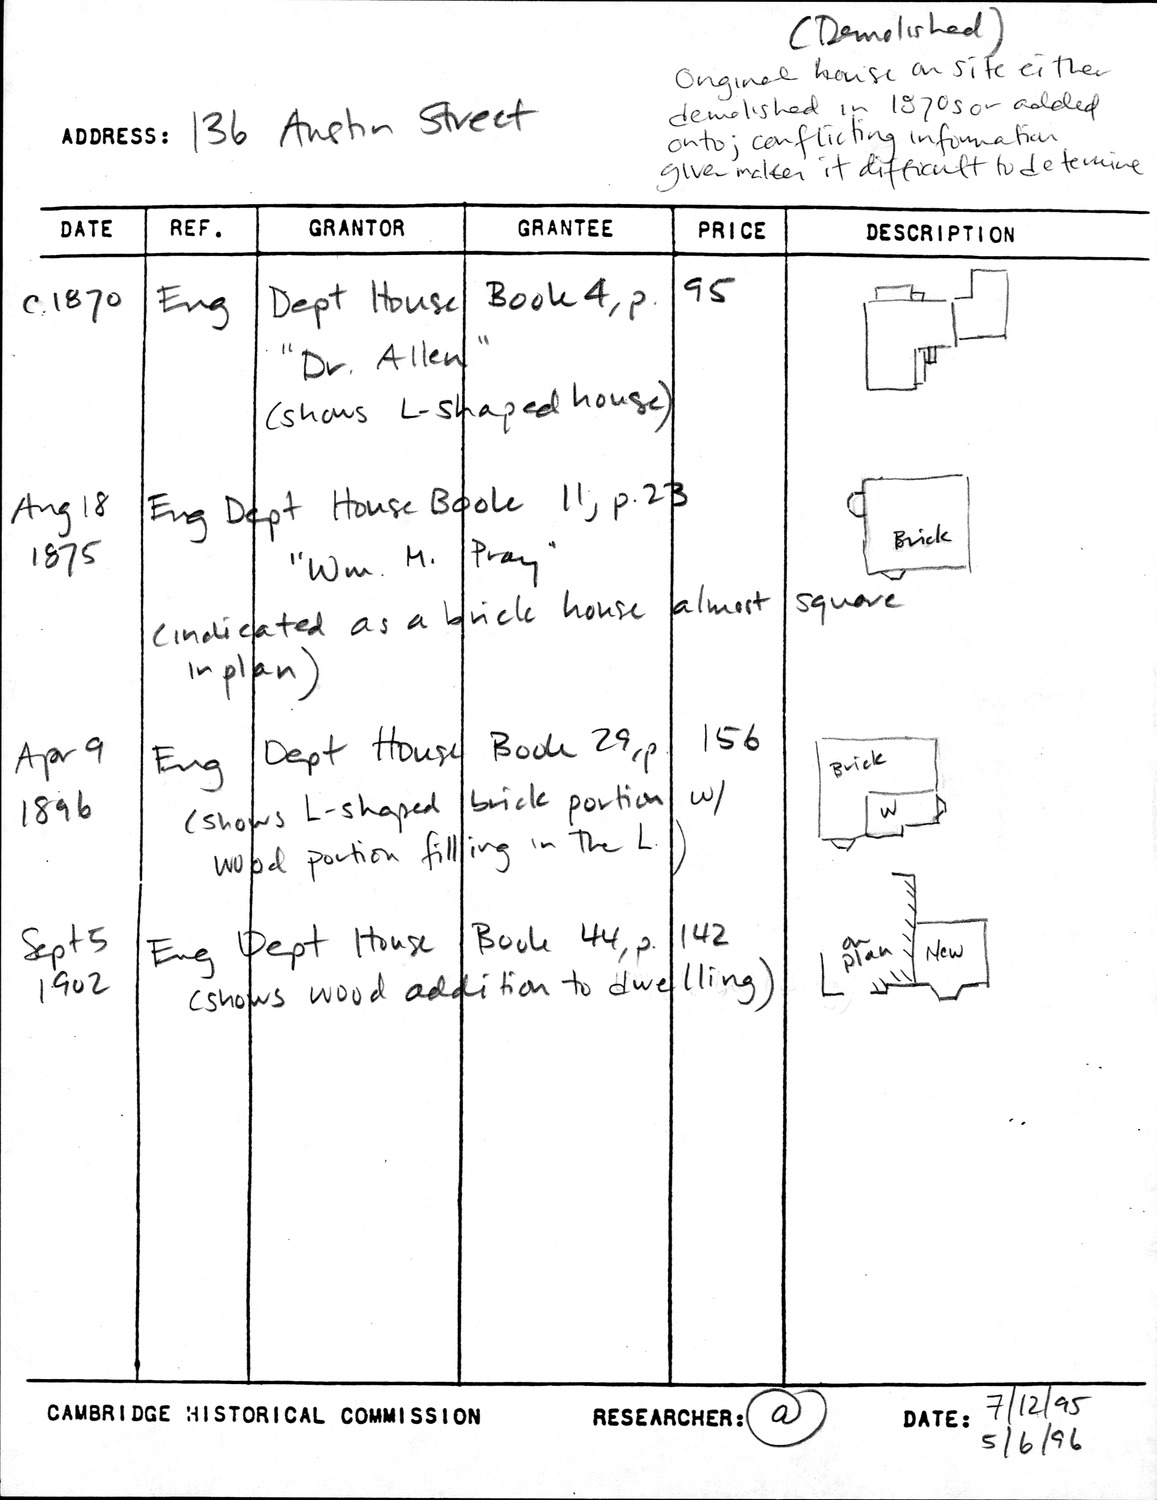 (Demolished)
Original house on site either
demolished in 1870s or added
onto; conflicting information
given makes it difficult to determine
ADDRESS: 136 Austin Street
DATE REF. GRANTOR GRANTEE PRICE DESCRIPTION
c.1870 Eng Dept House Book 4, p. 95
"Dr. Allen"
(shows L-shaped house)
Aug 18 Eng Dept House Book 11, p. 23
1875 "Wm. M. Pray"
Brick
(indicated as a brick house almost square
in plan)
Apr 9 Eng Dept House Book 29, p. 156
Brick
1896 (shows L-shaped brick portion w/
W
wood portion filling in the L.)
Sept 5 Eng Dept House Book 44, p. 142
on plan New
1902 (shows wood addition to dwelling)
CAMBRIDGE HISTORICAL COMMISSION RESEARCHER: a DATE: 7/12/95
5/6/96